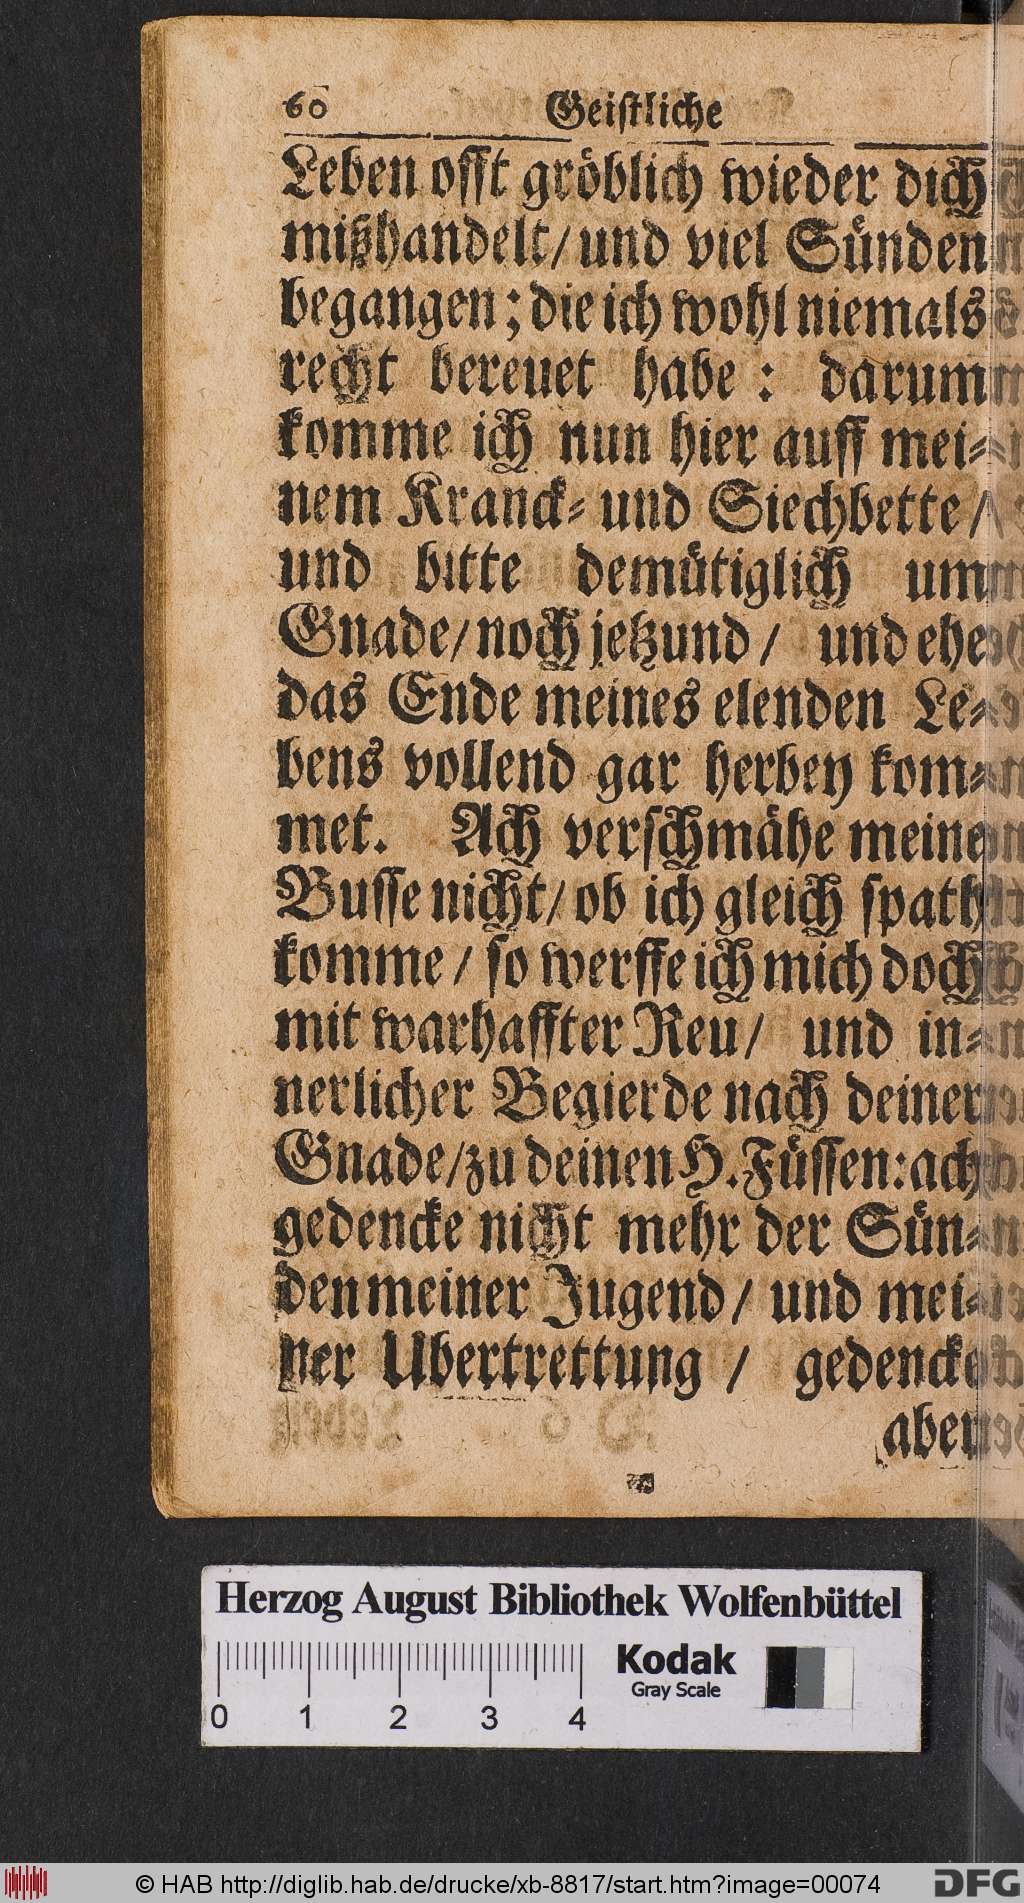 60 Geistliche
Leben offt gröblich wieder dich
mißhandelt/ und viel Sünden
begangen; die ich wohl niemals
recht bereuet habe: darum
komme ich nun hier auff mei-
nem Kranck- und Siechbette/
und bitte demütiglich um
Gnade/ noch jetzund/ und ehe
das Ende meines elenden Le-
bens vollend gar herbey kom-
met. Ach verschmähe meine
Busse nicht/ ob ich gleich spath
komme/ so werffe ich mich doch
mit warhaffter Reu/ und in-
nerlicher Begierde nach deiner
Gnade/ zu deinen H. Füssen: ach
gedencke nicht mehr der Sün-
den meiner Jugend/ und mei-
ner Ubertrettung / gedencke
aber
Herzog August Bibliothek Wolfenbüttel
Kodak
Gray Scale
0 1 2 3 4
© HAB http://diglib.hab.de/drucke/xb-8817/start.htm?image=00074
DFG